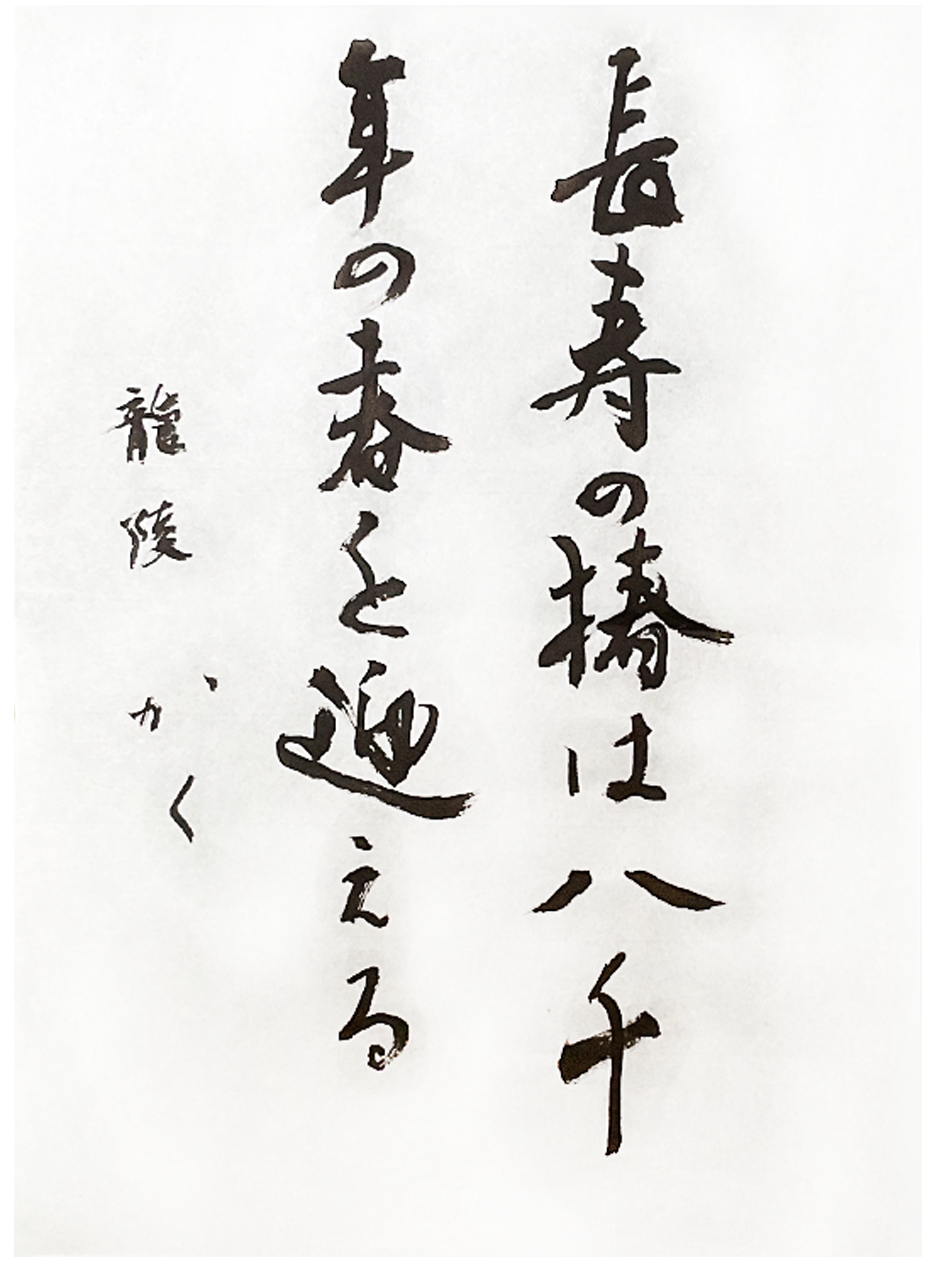 長寿の椿は八千
年の春を迎える
龍陵
かく